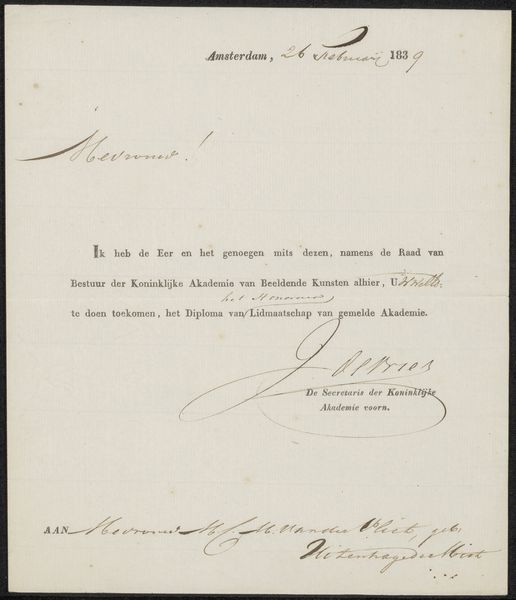 Amsterdam, 26 Februarij 1839
Mevrouw!
Ik heb de Eer en het genoegen mits dezen, namens de Raad van
Bestuur der Koninklijke Akademie van Beeldende Kunsten alhier, U
het Honorair
te doen toekomen, het Diploma van/Lidmaatschap van gemelde Akademie.
J. de Vries
De Secretaris der Koninklijke
Akademie voorn.
AAN Mevrouw M. C. M. van der Vliet, geb.
Uitenhage de Mist